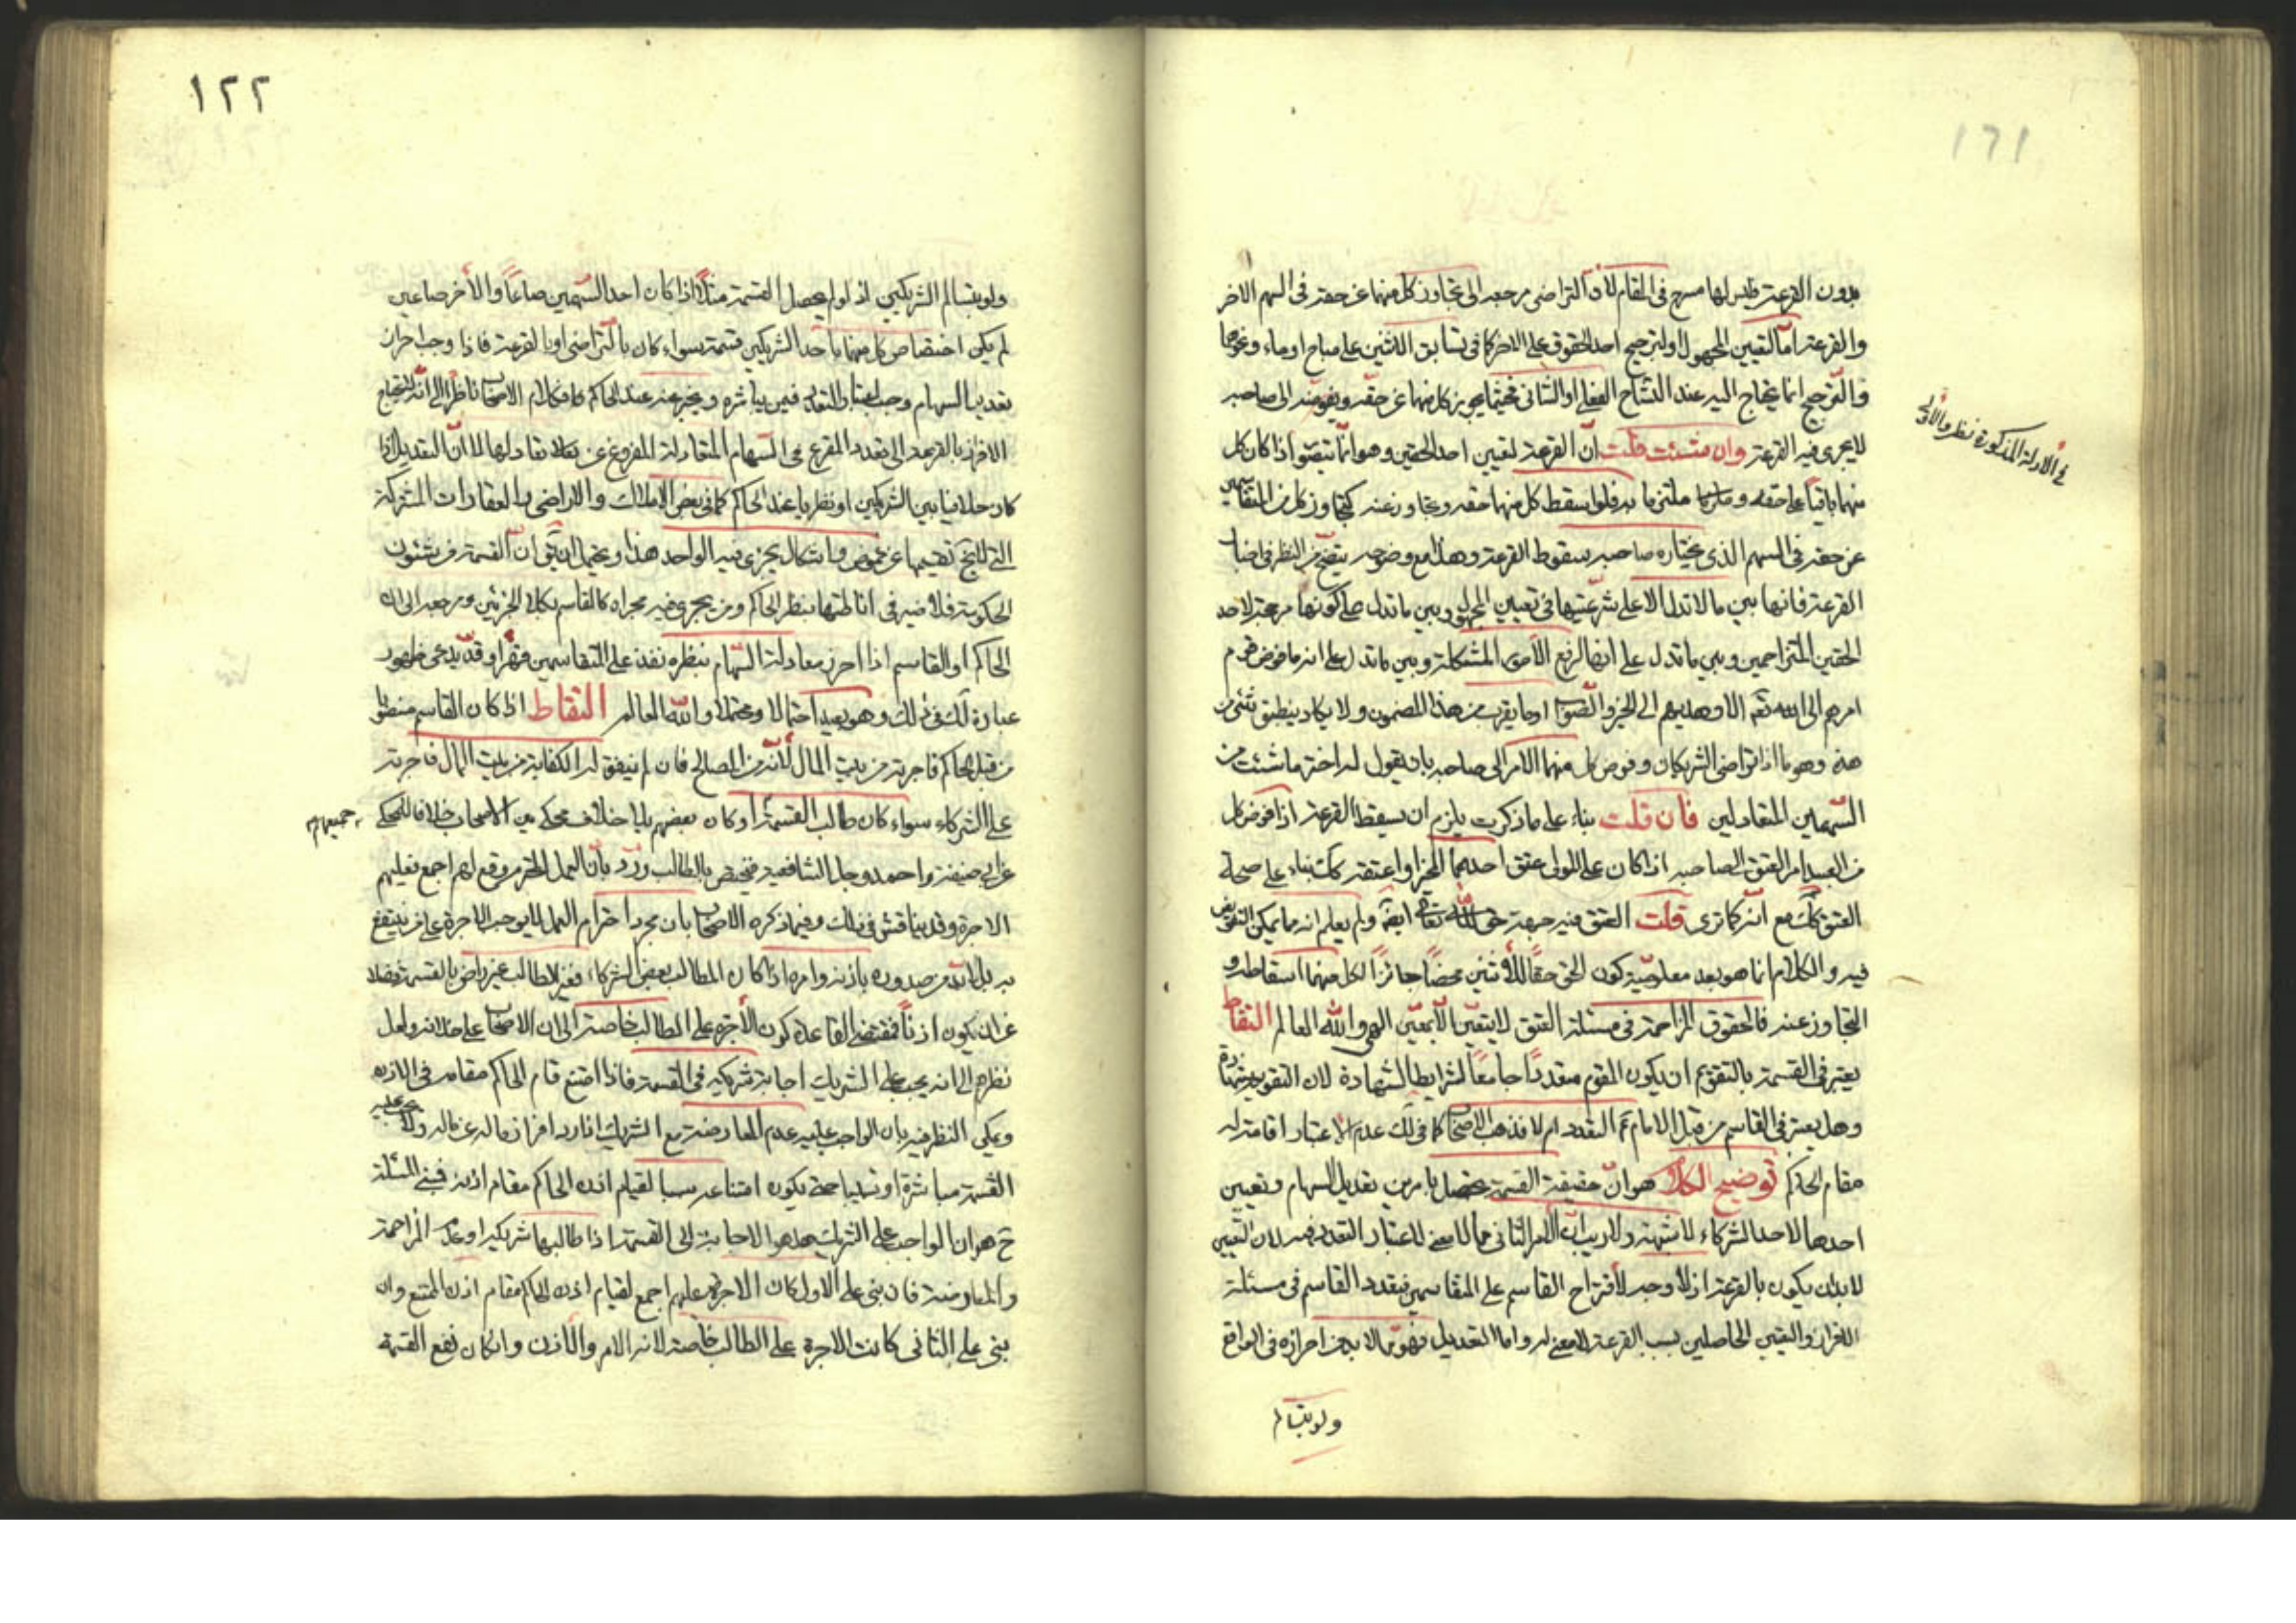 ١٦١
بدون القرعة وليس لها مسرح في المقام لان التراضي مرجعه الى تجاوز كل منهما عن حقه في السهم الاخر
والقرعة اما لتعيين المجهول او لترجيح احد الحقوق على الاخر كما في تسابق الاثنين على مباح او ماء ونحوهما
والترجيح انما يحتاج اليه عند التشاح الفعلي او الشاني فحيثما يجوز كل منهما عن حقه ويفوضه الى صاحبه
لا يجري فيه القرعة وان شئت قلت ان القرعة لتعيين احد الحقين وهو انما يتصور اذا كان كل
منهما باقيا على حقه ملتزما به فلو اسقط كل منهما حقه وتجاوز عنه كتجاوز كل من المتقاسمين
عن حقه في السهم الذي يختاره صاحبه سقوط القرعة وهذا مع وضوحه يتضح من النظر في اخبار
القرعة فانها بين ما لا تدل الا على شرعيتها في تعيين المجهول وبين ما تدل على كونها مرجحة لاحد
الحقين المتزاحمين وبين ما تدل على انها لرفع الامور المشكلة وبين ما تدل على انه ما فوض قوم
امرهم الى الله تعه الا وهديهم الى الخير والصواب او ما يقرب من هذا المضمون ولا يكاد ينطبق شئ من
هذه وهو ما اذا تراضى الشريكان وفوض كل منهما الامر الى صاحبه بان يقول له اختر ما شئت من
السهمين المتعادلين فان قلت بناء على ما ذكرت يلزم ان يسقط القرعة اذا فوض كل
من العبيد امر العتق الى صاحبه اذا كان على المولى عتق احدهما المخير او اعتقه كك بناء على صحة
العتق كك مع انه كما ترى قلت العتق فيه جهة حق الله تعالى ايضا ولم يعلم انه مما يمكن التفويض
فيه والكلام انما هو بعد معلومية كون الحق حقا للاثنين محضا جائزا لكل منهما اسقاطه و
التجاوز عنه فالحقوق المزاحمة في مسئلة العتق لا يتعين الا بمعين الهي والله العالم التقاط
يعتبر في القسمة بالتقويم ان يكون المقوم متعددا جامعا لشرايط الشهادة لان التقويم شهادة
وهل يعتبر في القاسم من قبل الامام ع التعدد ام لا فذهب الاصحاب كما في لك عدم الاعتبار اقامة له
مقام الحاكم توضيح الكلام هو ان حقيقة القسمة يحصل بامرين تعديل السهام وتعيين
احدها لاحد الشركاء لا شبهة ولا ريب ان الامر الثاني مما لا معنى لاعتبار التعدد فيه لان التعيين
لا بد ان يكون بالقرعة اذ لا وجه لاقتراح القاسم على المتقاسمين فتعدد القاسم في مسئلة
الافراز والتعيين الحاصلين بسبب القرعة لا معنى له واما التعديل فهو مما لا بد من احرازه في الواقع
ولو بتسالم
في الادلة المذكورة نظر والاولى
١٢٢
ولو بتسالم الشريكين اذ لو لم يحصل القسمة مثلا اذا كان احد السهمين صاعا والاخر صاعين
لم يكن اختصاص كل منهما باحد الشريكين قسمة سواء كان بالتراضي او بالقرعة فاذا وجب احراز
تعديل السهام وجب اعتبار التعدد فيمن يباشره ويخبر عنه عند الحاكم فكلام الاصحاب ناظر الى انه لا يحتاج
الافراز بالقرعة الى تعدد المقرع في السهام المتعادلة المفروغ عن تعادلها لا ان التعديل اذا
كان خلافيا بين الشريكين او نظريا عند الحاكم كما في بعض الاملاك والاراضي والعقارات المشتركة
التي لا يخ تقسيمها عن غموض واشكال يجزي فيه الواحد هذا ويحتمل ان يق ان القسمة من شئون
الحكومة فلا ضير في اناطتها بنظر الحاكم ومن يجري فيه مجراه كالقاسم بكلا الجزئين ومرجعه الى ان
الحاكم او القاسم اذا احرز معادلة السهام بنظره نفذ على المتقاسمين قهرا وقد يدعى ظهور
عبارة لك في ذلك وهو بعيد احتمالا ومحتملا والله العالم التقاط اذا كان القاسم منصوبا
من قبل الحاكم فاجرته من بيت المال لانه من المصالح فان لم يتفق له الكفاية من بيت المال فاجرته
على الشركاء سواء كان طالب القسمة او كان بعضهم بلا خلاف محكي بين الاصحاب خلافا للمحكي
جميعهم
عن ابي حنيفة واحمد وجل الشافعية فيختص بالطالب ورد بان العمل المحترم وقع لهم اجمع فعليهم
الاجرة وقد يناقش في ذلك وفيما ذكره الاصحاب بان مجرد احترام العمل لا يوجب الاجرة على من ينتفع
به بل لا بد من صدوره باذنه وامره اذا كان المطالب بعض الشركاء فغير الطالب غير راض بالقسمة فضلا
عن ان يكون اذنا فمقتضى القاعدة كون الاجرة على الطالب خاصة الى ان الاصحاب على خلافه ولعل
نظرهم الى انه يجب على الشريك اجابة شريكه في القسمة فاذا امتنع قام الحاكم مقامه في الاذن
ويمكن النظر فيه بان الواجب عليه عدم المعارضة مع الشريك اذا اراد افراز ماله عن ماله ولا يجب عليه
القسمة مباشرة او تسبيبا حتى يكون امتناعه سببا لقيام اذن الحاكم مقام اذنه فمبنى المسئلة
ح هو ان الواجب على الشريك هل هو الاجابة الى القسمة اذا طالبها شريكه او عدم المزاحمة
والمعارضة فان بنى على الاول كان الاجرة عليهم اجمع لقيام اذن الحاكم مقام اذن الممتنع وان
بنى على الثاني كانت الاجرة على الطالب خاصة لانه الامر والاذن وان كان نفع القسمة